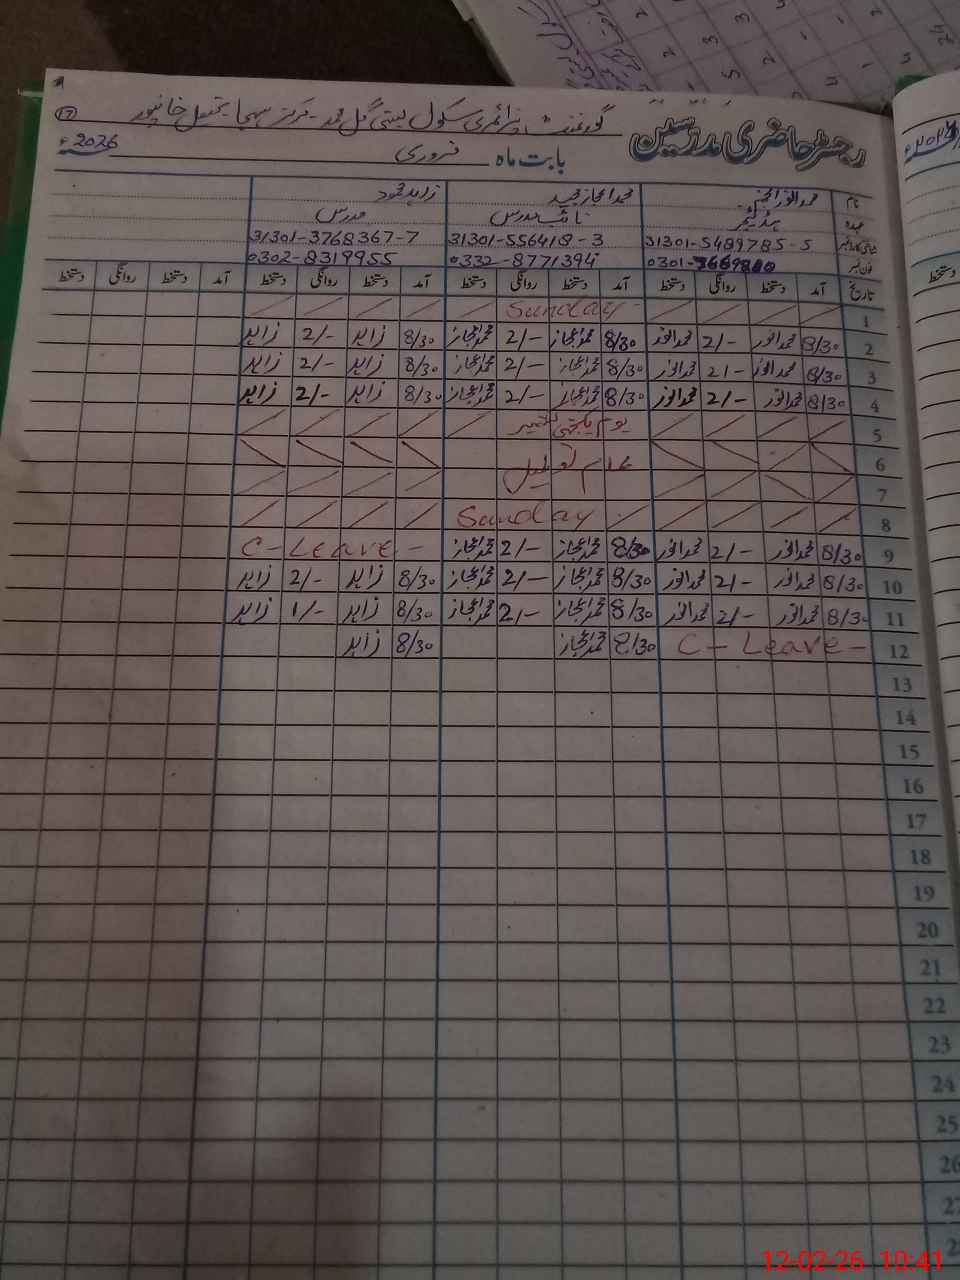 گورنمنٹ پرائمری سکول بستی گل محمد - مرکز سہجا تحصیل خانپور
رجسٹر حاضری مدرسین
بابت ماہ فروری 2026ء
17
نام محمد انور انجم محمد اعجاز مجید زاہد محمود
عہدہ ہیڈ ٹیچر نائب مدرس مدرس
شناختی کارڈ نمبر 31301-5489785-5 31301-556418-3 31301-3768367-7
فون نمبر 0301-7669880 0332-8771394 0302-8319955
تاریخ آمد دستخط روانگی دستخط آمد دستخط روانگی دستخط آمد دستخط روانگی دستخط آمد دستخط روانگی دستخط
1 Sunday
2 8/30 محمد انور 2/- محمد انور 8/30 محمد اعجاز 2/- محمد اعجاز 8/30 زاہد 2/- زاہد
3 8/30 محمد انور 2/- محمد انور 8/30 محمد اعجاز 2/- محمد اعجاز 8/30 زاہد 2/- زاہد
4 8/30 محمد انور 2/- محمد انور 8/30 محمد اعجاز 2/- محمد اعجاز 8/30 زاہد 2/- زاہد
5 یوم یکجہتی کشمیر
6 عام تعطیل
7
8 Sunday
9 8/30 محمد انور 2/- محمد انور 8/30 محمد اعجاز 2/- محمد اعجاز C-Leave-
10 8/30 محمد انور 2/- محمد انور 8/30 محمد اعجاز 2/- محمد اعجاز 8/30 زاہد 2/- زاہد
11 8/30 محمد انور 2/- محمد انور 8/30 محمد اعجاز 2/- محمد اعجاز 8/30 زاہد 1/- زاہد
12 C-Leave- 8/30 محمد اعجاز 8/30 زاہد
13
14
15
16
17
18
19
20
21
22
23
24
25
26
27
12-02-26 10:41